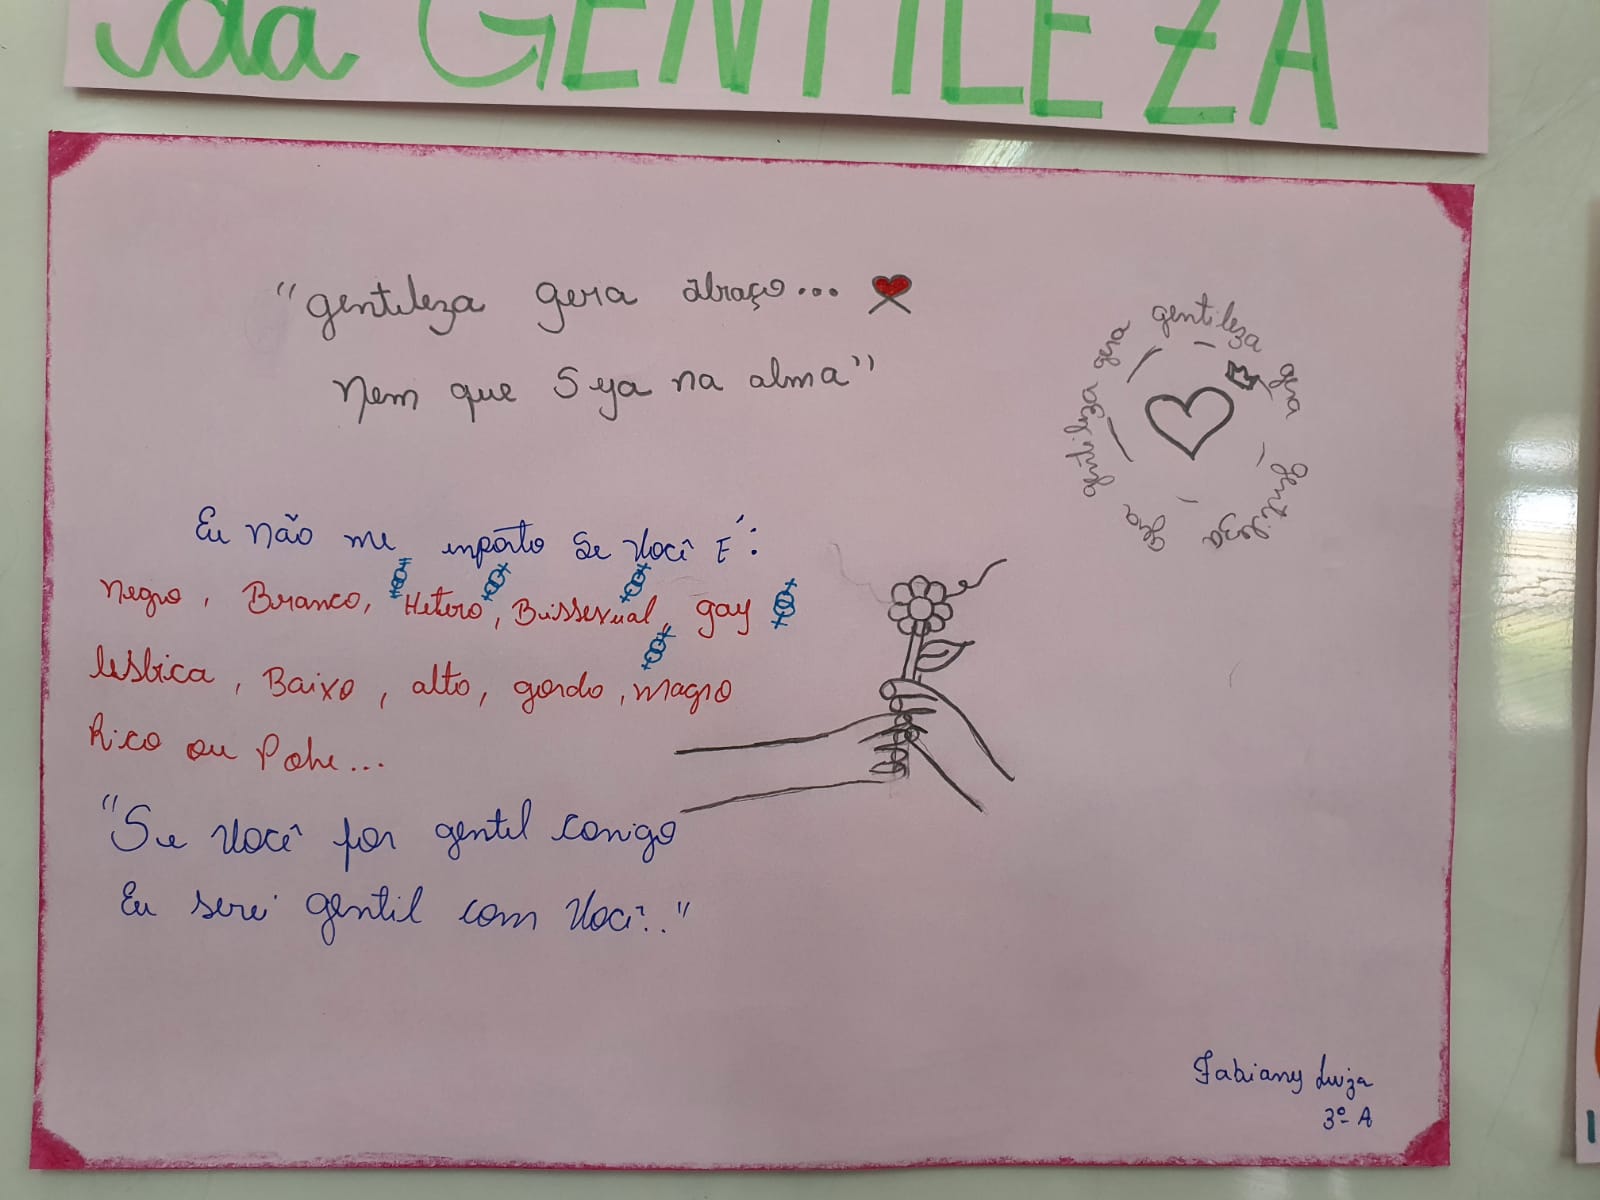 da GENTILEZA
"gentileza gera abraço...
nem que Seja na alma"
gentileza gera gentileza gera gentileza gera
Eu não me inporto se você É:
negro, Branco, Hetero, Buissexual, gay
lesbica, Baixo, alto, gordo, magro
Rico ou Pobre...
"Se você for gentil comigo
Eu serei gentil com você.."
Fabiany Luiza
3º A